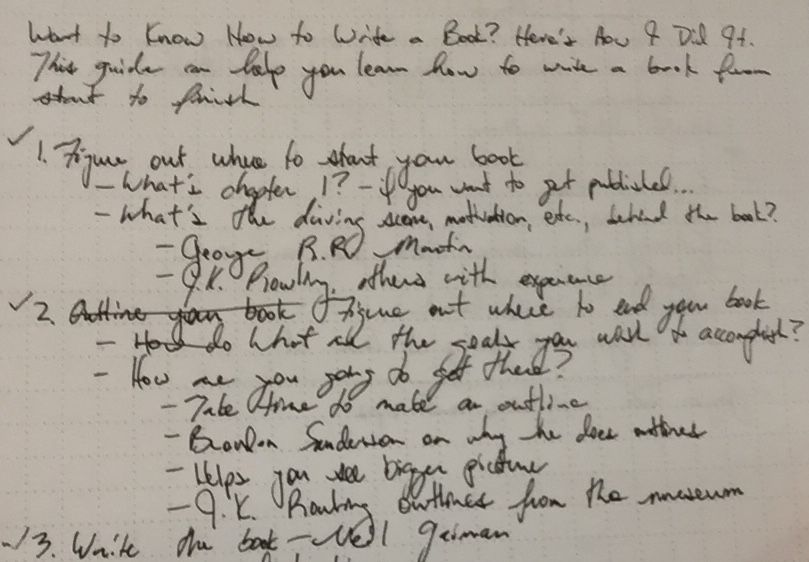 Want to Know How to Write a Book? Here's How I Did It.
This guide can help you learn how to write a book from
start to finish
✓ 1. Figure out where to start your book
- What's chapter 1? - if you want to get published...
- What's the driving scene, motivation, etc., behind the book?
- George R.R. Martin
- J.K. Rowling, others with experience
✓ 2. Outline your book Figure out where to end your book
- How do What are the goals you wish to accomplish?
- How are you going to get there?
- Take time to make an outline
- Brandon Sanderson on why he does outlines
- Helps you see bigger picture
- J.K. Rowling outlines from the museum
✓ 3. Write the book - Neil Gaiman